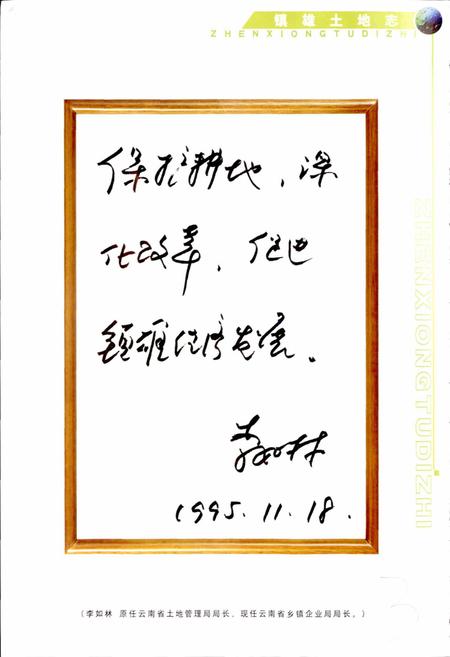 镇雄土地志
ZHENXIONGTUDIZHI
保护耕地，深
化改革，促进
镇雄经济发展。
李如林
1995.11.18.
ZHENXIONGTUDIZHI
（李如林 原任云南省土地管理局局长、现任云南省乡镇企业局局长。）